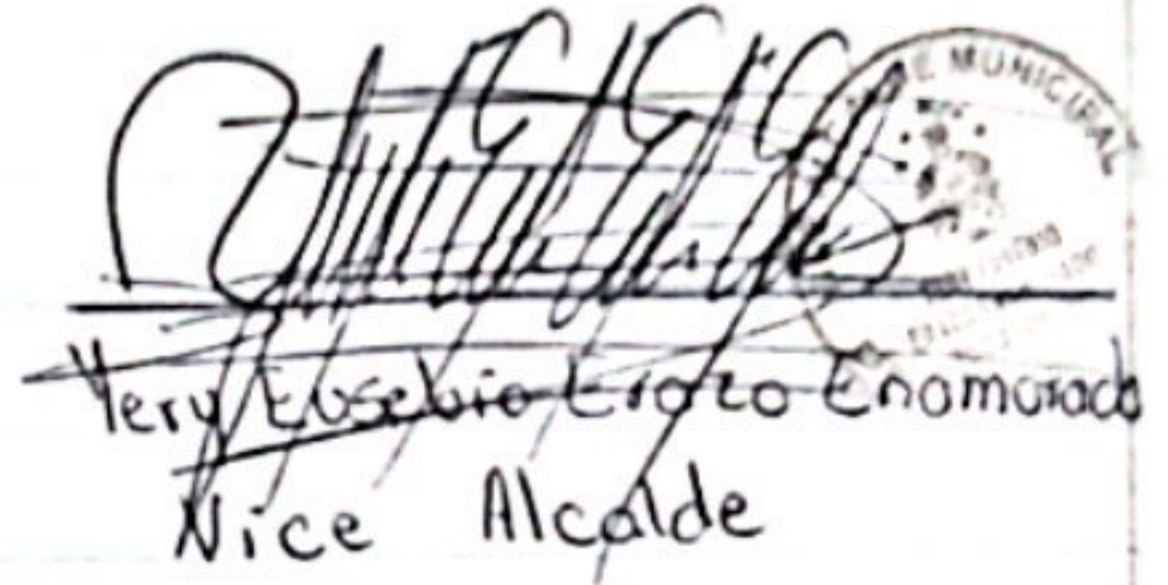 MUNICIPAL
Yery Eusebio Erazo Enamorado
Vice Alcalde